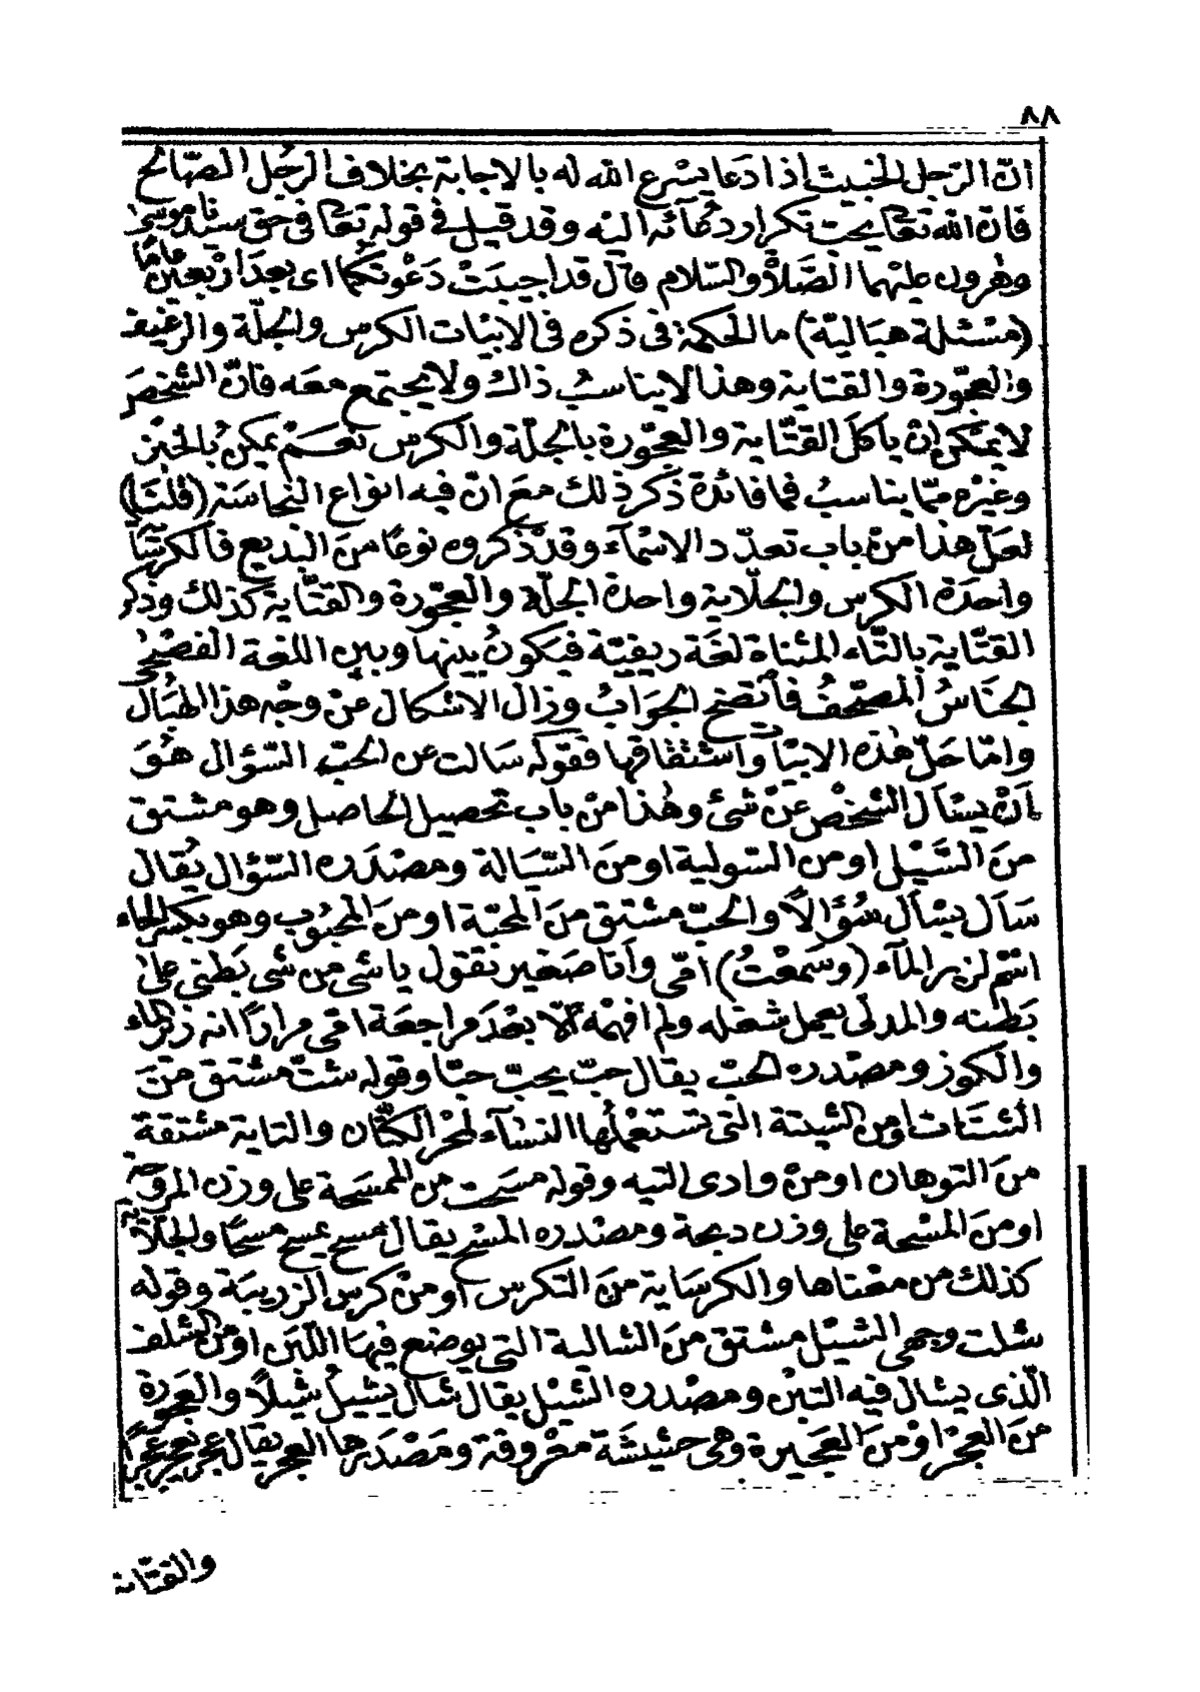 ٨٨
انّ الرّجل الخبيث إذا دَعا يسْرع الله له بالاجابة بخلاف الرجُل الصّالح
فانّ الله تعالى يحبّ تكرار دعآئه اليْه وقد قيل في قوله تعالى في حق سيدنا موسى
وهٰرون عليْهما الصّلاة والسّلام قال قد اجيبَتْ دَعْوتكُما اى بعدَ ارْبعين عامًا
(مسْئلة هبَاليّة) ما الحكمة فى ذكره فى الابيْات الكرس والجلّة والرغيف
والعجّورة والقتاية وهذا لا يناسبُ ذاك ولا يجتمع معَه فانّ الشخصَ
لا يمكن انْ يأكلَ القتّاية والعجّورة بالجلّة والكرس نعَمْ يمكنُ بالخبْز
وغيْره ممّا يناسبُ فما فائدة ذكر ذلك معَ انّ فيه انواع النجاسَة (قلنَا)
لعلّ هذا منْ باب تعدّد الاسْمآء وقدْ ذكروه نوعًا منَ البديع فالكرسَاية
واحدَة الكرس والجلّاية واحدة الجلّة والعجّورة والقتّاية كذلك وذكر
القتّاية بالتّاء المثناة لغة ريفيّة فيكونُ بينها وبين اللغة الفصْحى
الجناسُ المصحّفُ فاتّضحَ الجوَابُ وزال الاشكال عنْ وجْه هذا الهبَال
وامّا حَلّ هٰذه الابيْات واشتقاقها فقوله سَالت عن الحبّ السّؤال هُوَ
أنْ يسْأل الشخْص عنْ شئ وهٰذا منْ باب تحصيل الحاصل وهو مشتق
منَ السَّيْل او من السّولية او منَ السّيَالة ومصْدَره السّؤال يُقال
سَأل يسْأل سُؤَالاً والحبّ مشتق منَ المحبّة او منَ المحبُوب وهو بكسر الحاء
اسْم لزير المآء (وسَمعْتُ) امّى وأنا صَغير تقول يا شى من شى بَطنى على
بَطنه والمدلّى يعمل شغله ولم افهمْه الّا بعْدَ مراجعَة امّى مرارًا انه زير الماء
والكوز ومصْدره الحبّ يقال حبّ يحبّ حبّا وقوله ستّ مشتق منَ
الشتَات او من الشيتة التى تستعْملُها النسَآء لمجْر الكتّان والتاية مشتقة
منَ التوهان او منْ وادى التيه وقوله مسَحت من الممسَحة على وزن المروَحة
او منَ المسْحة على وزن ديحة ومصْدره المسْح يقال مسح يمسح مسْحًا والجلّاية
كذلك من معْناها والكرسَاية منَ التكرس او منْ كرس الزريبَة وقوله
شلت وجهى الشيْل مشتق منَ الشالية التى يوضع فيها اللّبَن او من الشلف
الّذى يشال فيه التبْن ومصْدره الشيْل يقال شال يشيلُ شيْلاً والعَجورة
منَ العجْر او منَ العجَيرة وهى حشيشَة معْروفة ومَصْدَرها العجر يقال عجر يعجر عجرًا
والقتّاية